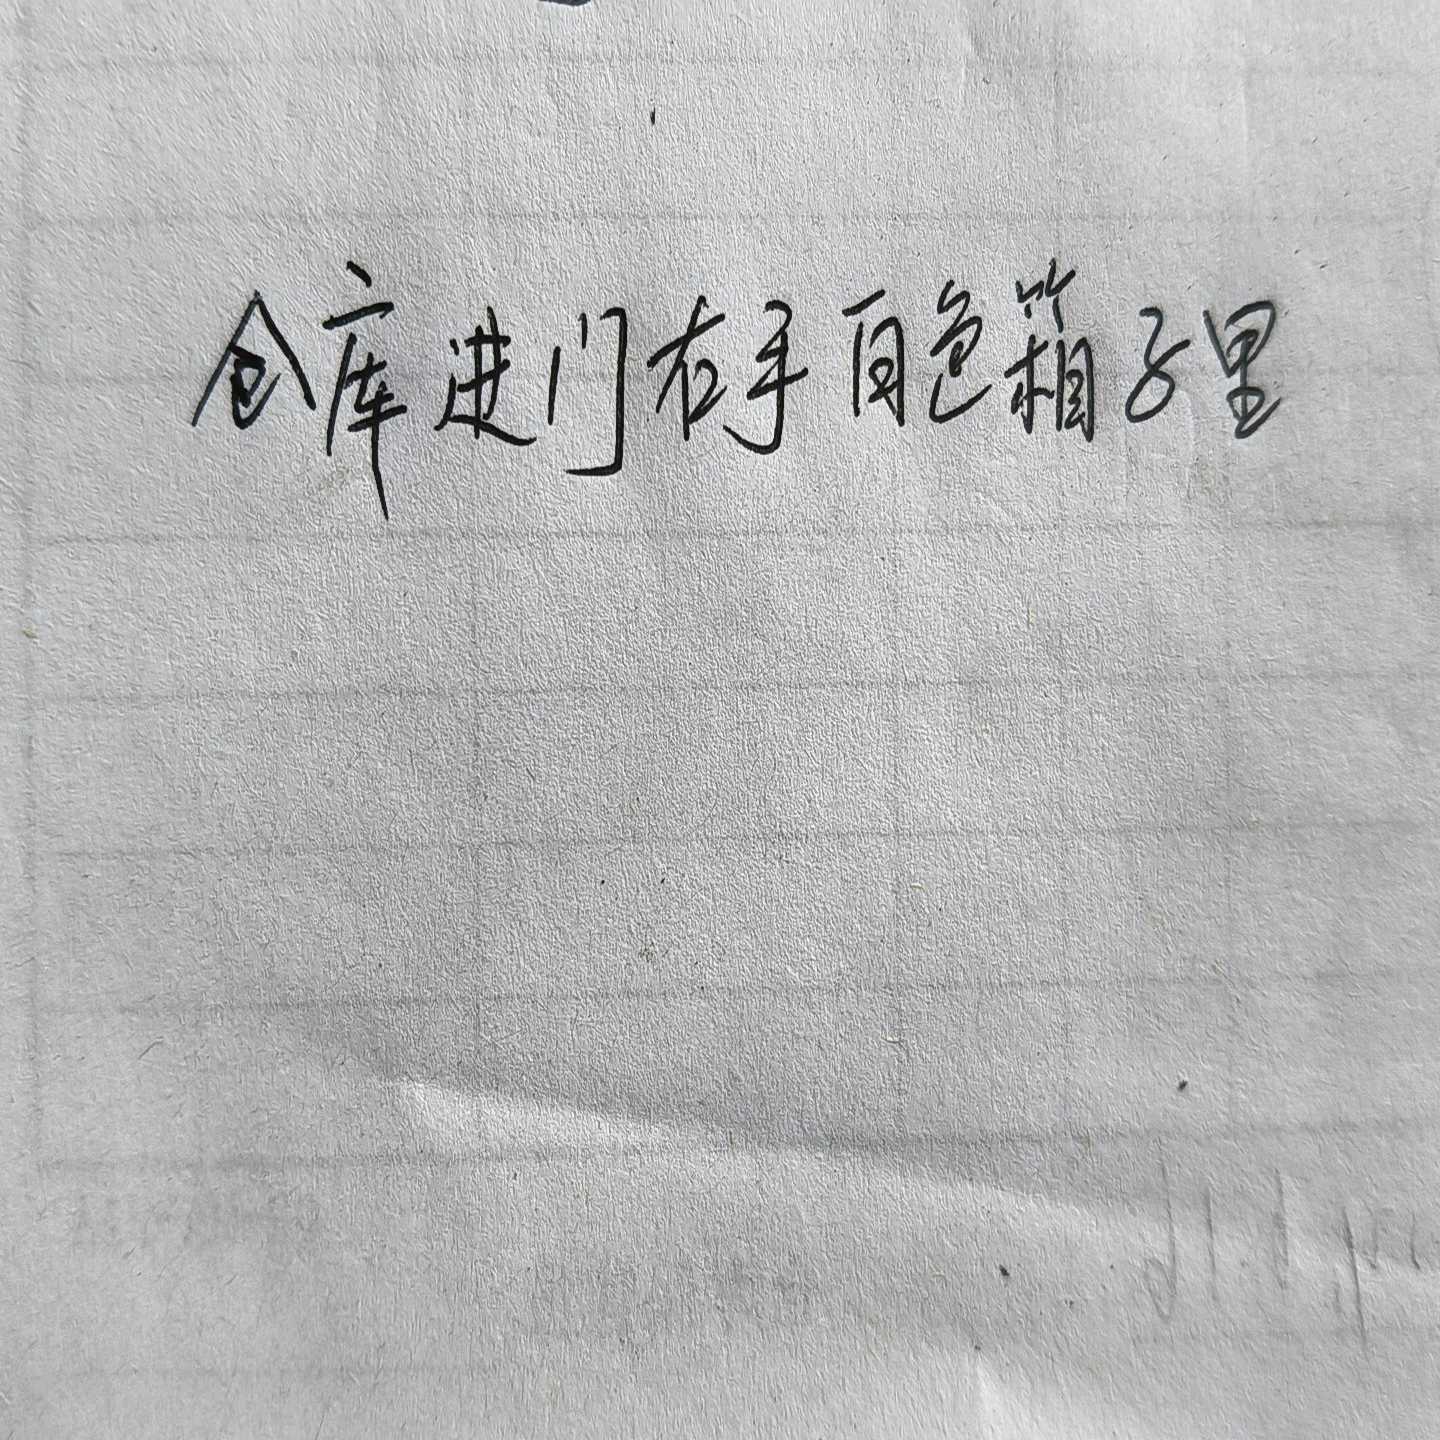 仓库进门右手白色箱子里